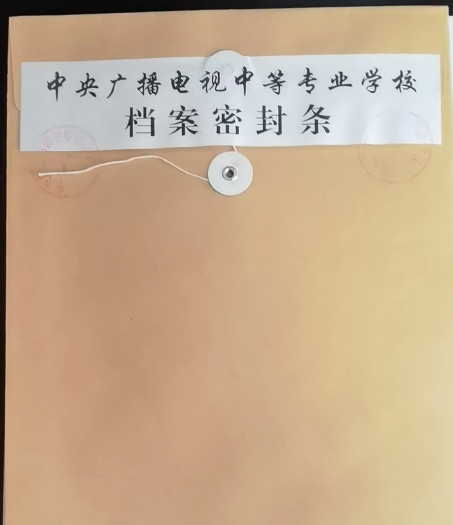 中央广播电视中等专业学校
档案密封条